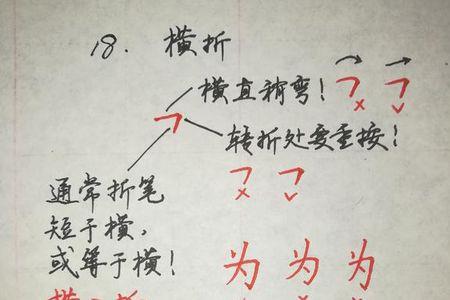 18. 横折
横直稍弯!
转折处要重按!
通常折笔
短于横,
或等于横!
为为为